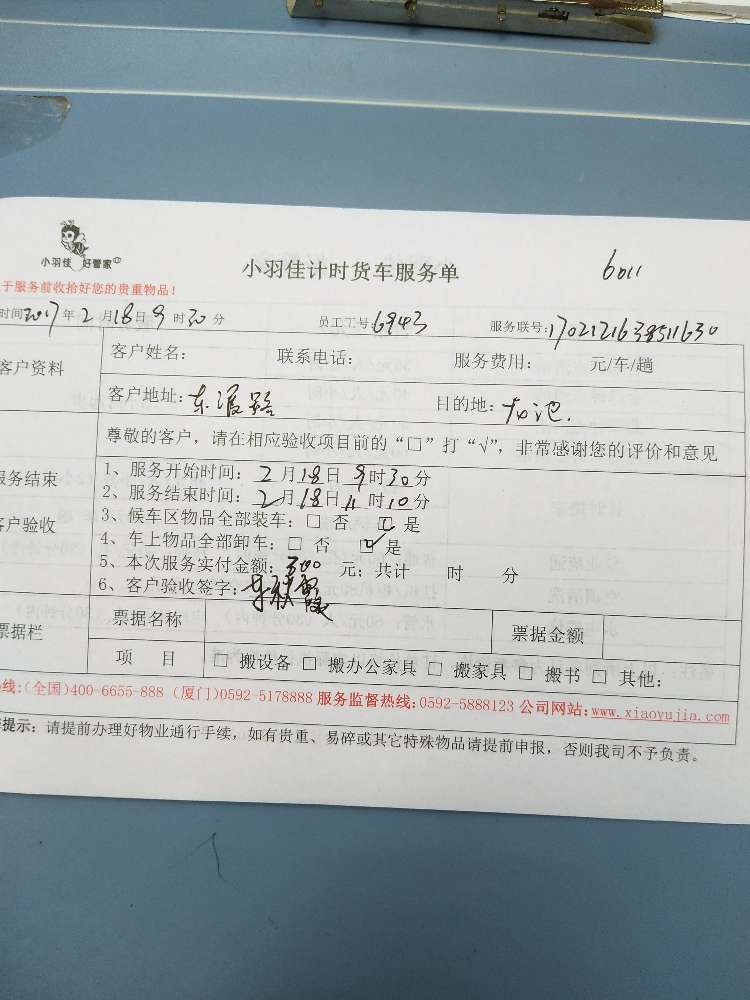 小羽佳 好管家
小羽佳计时货车服务单
6011
于服务前收拾好您的贵重物品！
时间:2017年2月18日9时30分 员工工号:6943 服务联号:
客户资料
客户姓名： 联系电话： 服务费用： 元/车/趟
客户地址：东渡路 目的地：
尊敬的客户，请在相应验收项目前的“□”打“√”，非常感谢您的评价和意见
服务结束
客户验收
1、服务开始时间：2月18日9时30分
2、服务结束时间：2月18日11时10分
3、候车区物品全部装车：□ 否 ☑ 是
4、车上物品全部卸车：□ 否 ☑ 是
5、本次服务实付金额：300元；共计 时 分
6、客户验收签字：
票据栏
票据名称 票据金额
项 目 □ 搬设备 □ 搬办公家具 □ 搬家具 □ 搬书 □ 其他：
线:(全国)400-6655-888 (厦门)0592-5178888 服务监督热线:0592-5888123 公司网站:www.xiaoyujia.com
提示：请提前办理好物业通行手续，如有贵重、易碎或其它特殊物品请提前申报，否则我司不予负责。